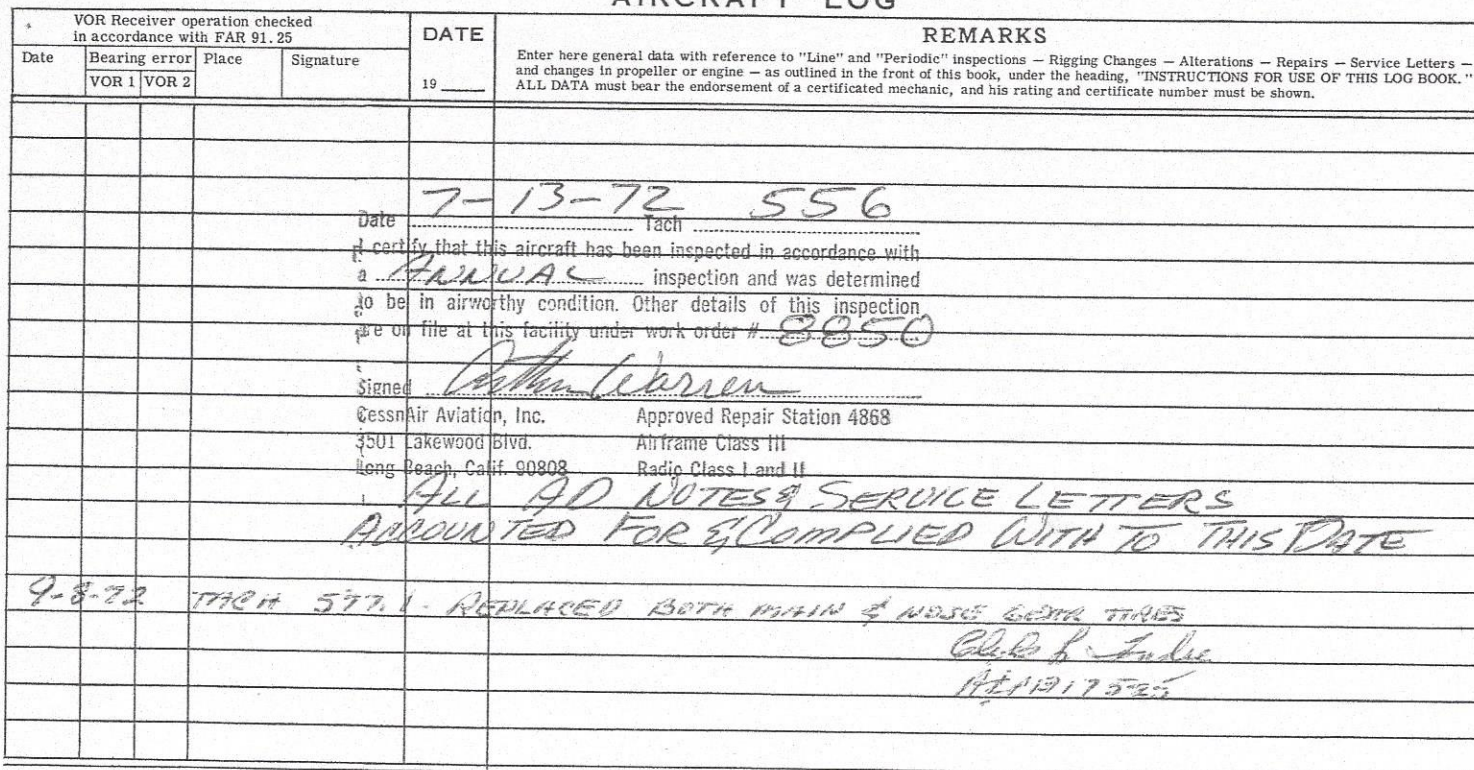 AIRCRAFT LOG
VOR Receiver operation checked
in accordance with FAR 91.25
Date
Bearing error
VOR 1 VOR 2
Place
Signature
DATE
19
REMARKS
Enter here general data with reference to "Line" and "Periodic" inspections — Rigging Changes — Alterations — Repairs — Service Letters —
and changes in propeller or engine — as outlined in the front of this book, under the heading, "INSTRUCTIONS FOR USE OF THIS LOG BOOK."
ALL DATA must bear the endorsement of a certificated mechanic, and his rating and certificate number must be shown.
Date 7-13-72 Tach 556
I certify that this aircraft has been inspected in accordance with
a ANNUAL inspection and was determined
to be in airworthy condition. Other details of this inspection
are on file at this facility under work order # 8850
Signed Arthur Warren
CessnAir Aviation, Inc. Approved Repair Station 4868
3501 Lakewood Blvd. Airframe Class III
Long Beach, Calif. 90808 Radio Class I and II
ALL AD NOTES & SERVICE LETTERS
ACCOUNTED FOR & COMPLIED WITH TO THIS DATE
9-8-72 TACH 577.1 - REPLACED BOTH MAIN & NOSE GEAR TIRES